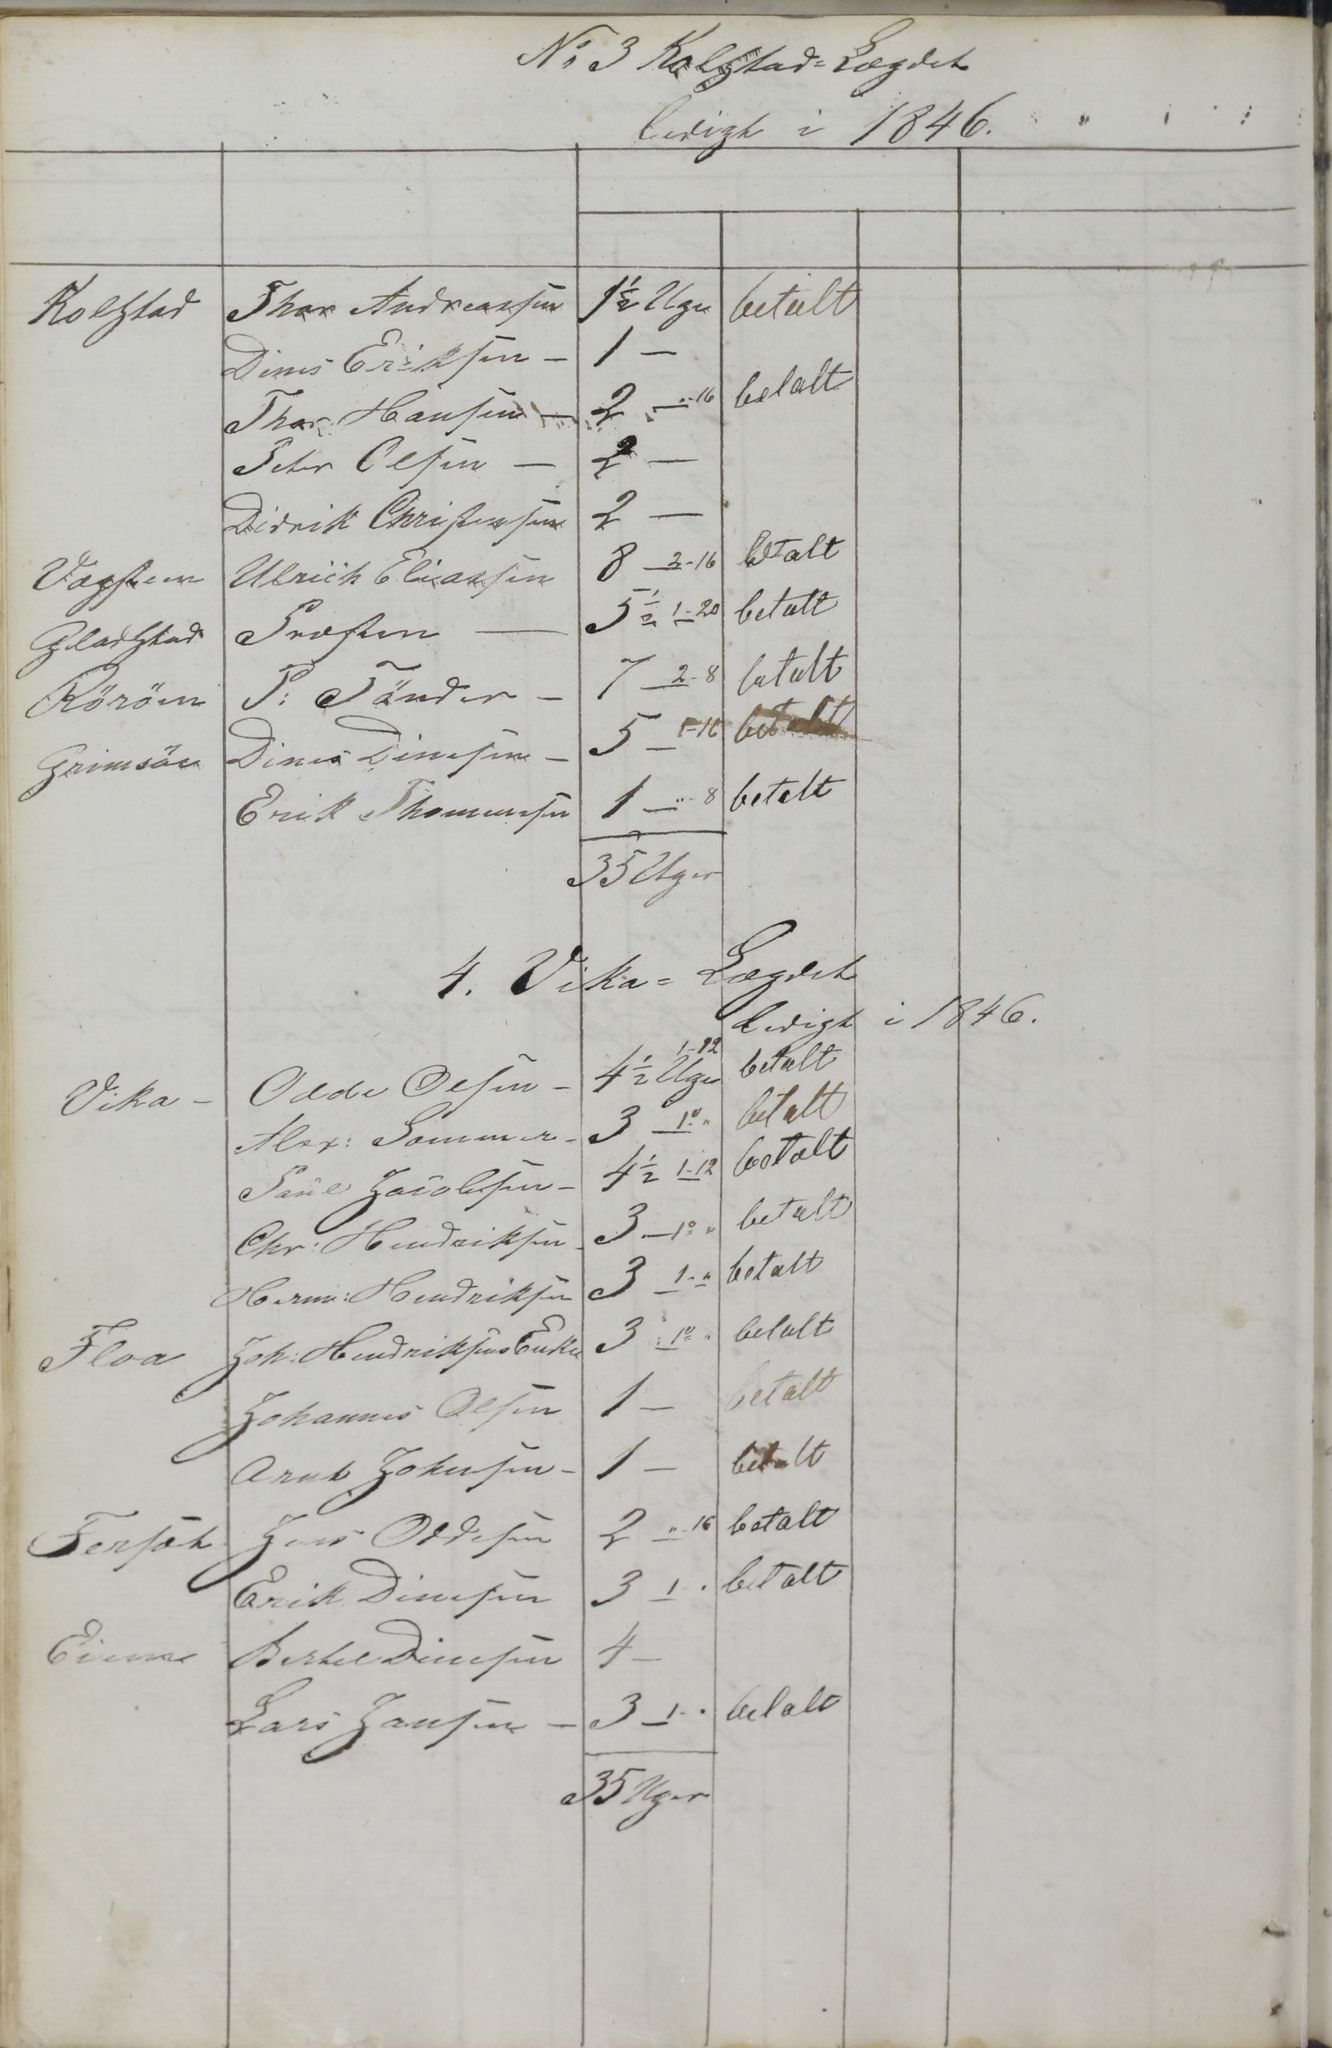 No 3 Kolstad=Lægdet
ledigt i 1846.
Kolstad Thor Andreassen 1½ Uger betalt
Dines Eriksen – 1 –
Thor Hansen – 2 – "-16 betalt
Peter Olsen – 2 –
Didrik Christensen 2 –
Ulrich Eliassen 8 – 2-16 betalt
Gladstad Præsten — 5½ 1-20 betalt
Röröen P: Tönder – 7 – 2-8 betalt
Grimsöe Dines Dinesen – 5 – 1-16 betalt
Erik Thomassen 1 – "-8 betalt
35 Uger
4. Vika= Lægdet
ledigt i 1846.
Vika – Odde Olsen – 4½ Uger 1-12 betalt
Alex: Sommer – 3 – 1 " betalt
Paul Jacobsen – 4½ 1-12 betalt
Chr: Hendriksen – 3 – 1 " betalt
Herm: Hendriksen 3 1-" betalt
Floa Joh: Hendriksens Enke 3 1 " betalt
Johannes Olsen 1 – betalt
Arnt Johnsen – 1 – betalt
Forsæt Jens Oddesen 2 "-16 betalt
Erik Dinesen 3 1-" betalt
Bertel Dinesen 4 –
Lars Jansen – 3 – 1-" betalt
35 Uger